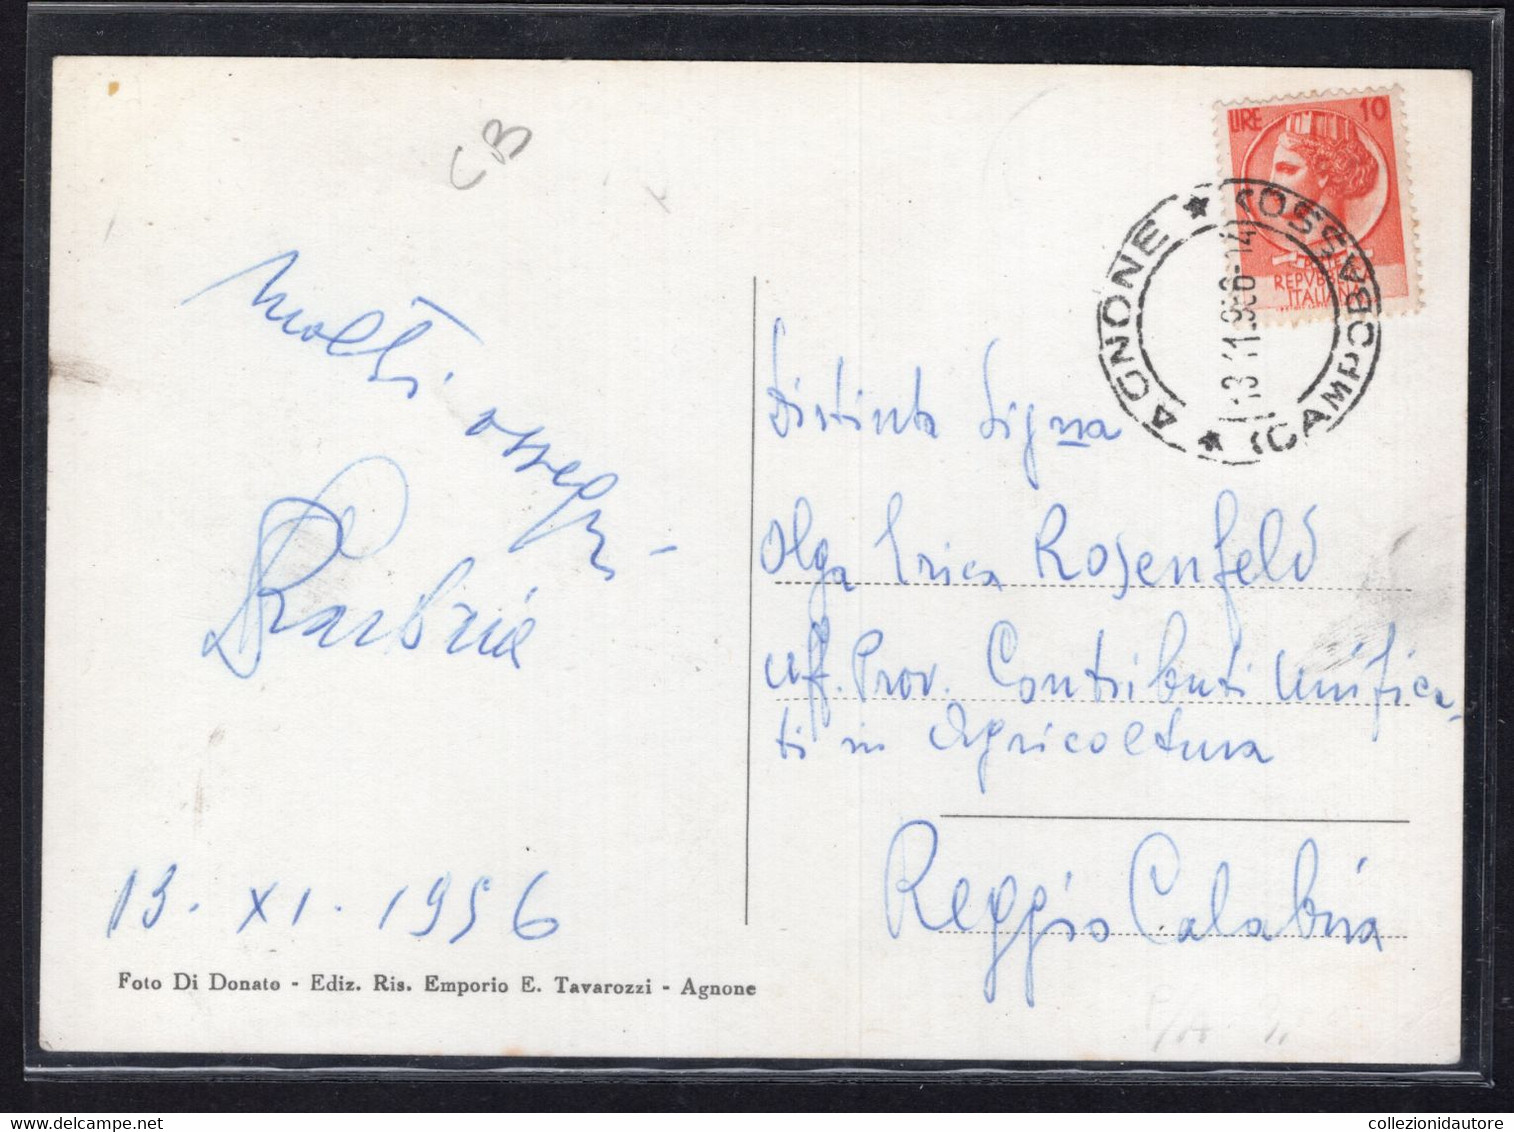 CB
LIRE 10
REPVBBLICA
ITALIANA
AGNONE ★ (CAMPOBASSO) ★
13.11.956-14
Molti ossequi -
13. XI. 1956
Foto Di Donato - Ediz. Ris. Emporio E. Tavarozzi - Agnone
Distinta Signa
Olga Erica Rosenfeld
Uff. Prov. Contributi Unifica-
ti in Agricoltura
Reggio Calabria
collezionidautore